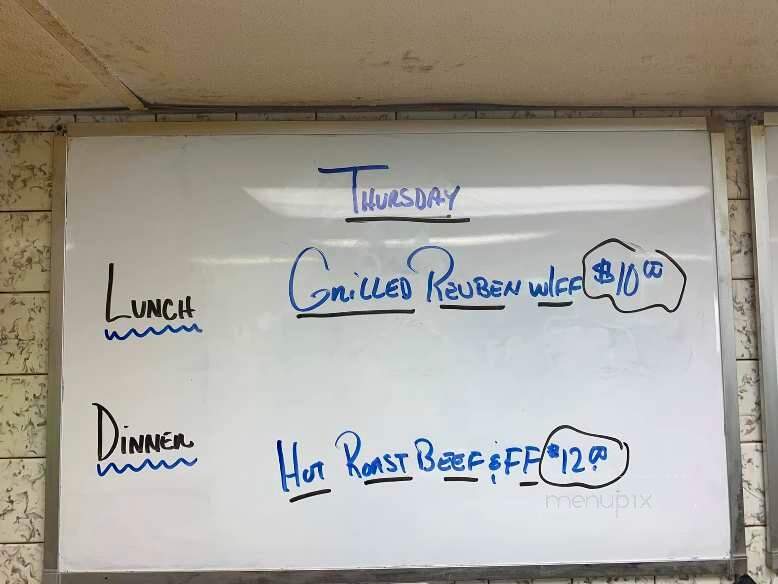 THURSDAY
LUNCH
GRILLED REUBEN W/FF $10.00
DINNER
HOT ROAST BEEF & FF $12.00
menupix